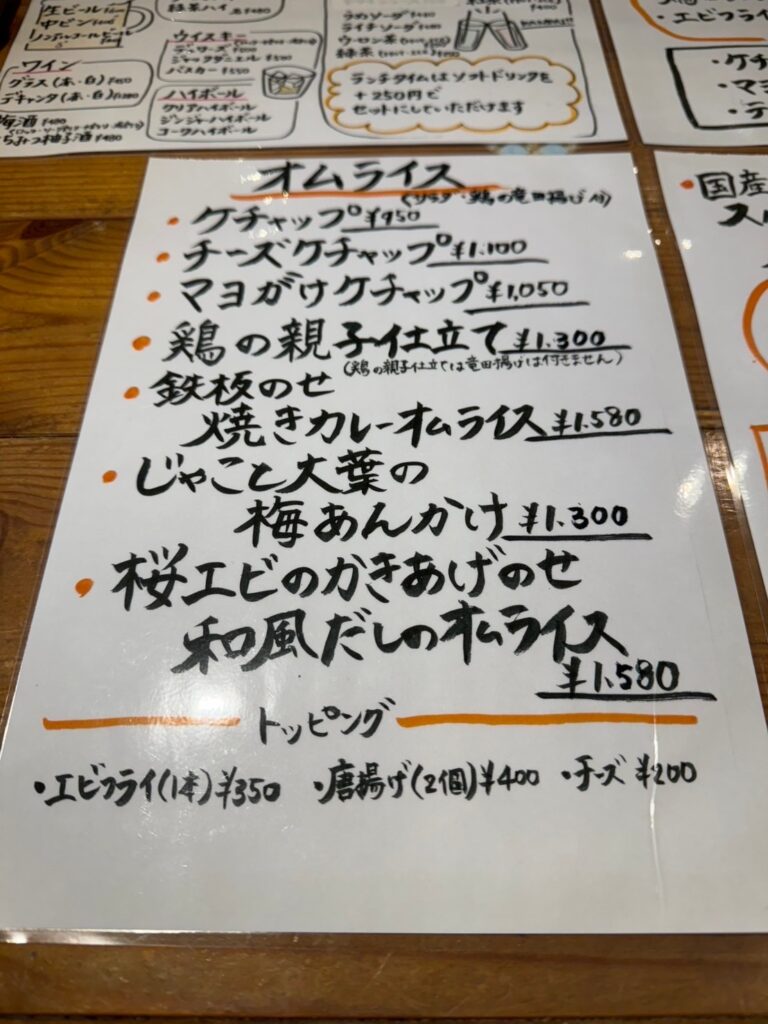 生ビール
中ビン
緑茶ハイ
ワイン
グラス(赤・白)
デキャンタ(赤・白)
梅酒
ウイスキー
ジャックダニエル ¥500
バスカー ¥550
ハイボール
クリアハイボール
ジンジャーハイボール
コークハイボール
ライチソーダ
ウーロン茶
緑茶
ランチタイムはソフトドリンクを
+250円で
セットにしていただけます
・エビフライ
・ケチ
・マヨ
・国産
オムライス
(サラダ・鶏の竜田揚げ付)
・ケチャップ ¥950
・チーズケチャップ ¥1.100
・マヨがけケチャップ ¥1,050
・鶏の親子仕立て ¥1.300
(鶏の親子仕立ては竜田揚げは付きません)
・鉄板のせ
焼きカレーオムライス ¥1.580
・じゃこと大葉の
梅あんかけ ¥1.300
・桜エビのかきあげのせ
和風だしのオムライス
¥1.580
トッピング
・エビフライ(1本)¥350 ・唐揚げ(2個)¥400 ・チーズ ¥200